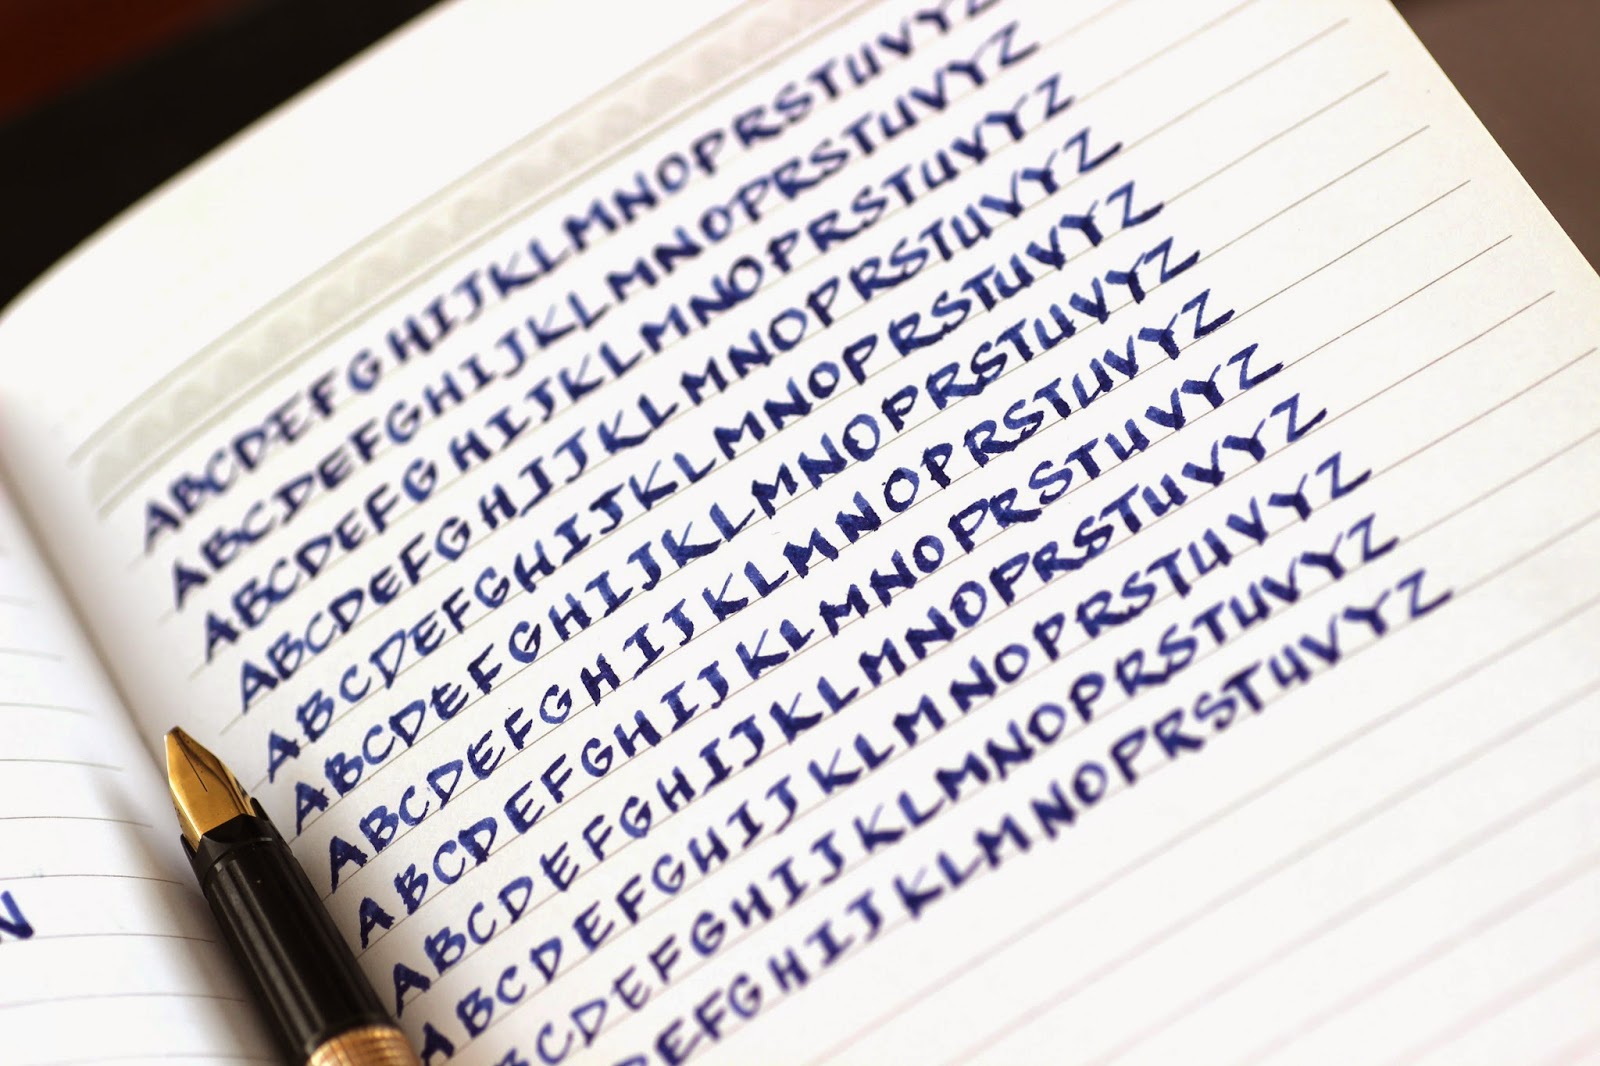 N
ABCDEFGHIJKLMNOPRSTUVYZ
ABCDEFGHIJKLMNOPRSTUVYZ
ABCDEFGHIJKLMNOPRSTUVYZ
ABCDEFGHIJKLMNOPRSTUVYZ
ABCDEFGHIJKLMNOPRSTUVYZ
ABCDEFGHIJKLMNOPRSTUVYZ
ABCDEFGHIJKLMNOPRSTUVYZ
ABCDEFGHIJKLMNOPRSTUVYZ
ABCDEFGHIJKLMNOPRSTUVYZ
ABCDEFGHIJKLMNOPRSTUVYZ
BCDEFGHIJKLMNOPRSTUVYZ
DEFGHIJKLMNOPRSTUVYZ